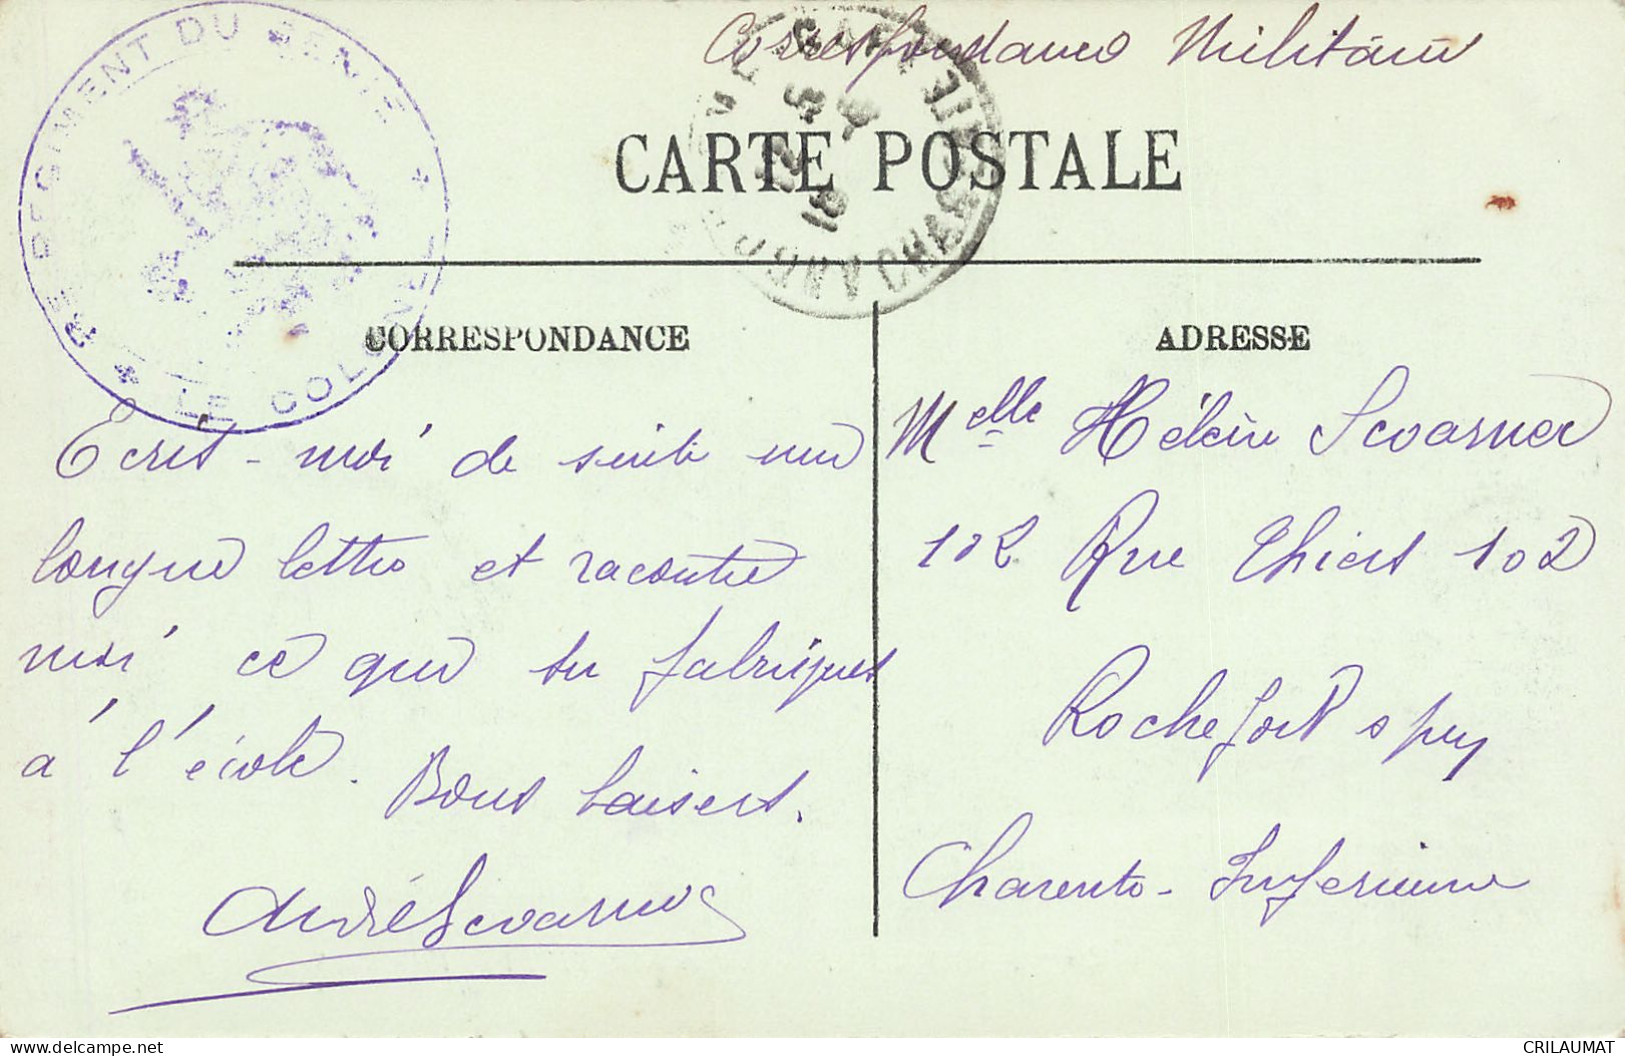 Correspondance Militaire
CARTE POSTALE
REGIMENT DU GENIE
LE COLONEL
CORRESPONDANCE
Ecris-moi de suite une
longue lettre et raconte
moi ce que tu fabriques
à l'école. Bons baisers.
André Scvarnec
ADRESSE
Melle Hélène Scvarnec
102 Rue Thiers 102
Rochefort s mer
Charente-Inférieure
delcampe.net
CRILAUMAT